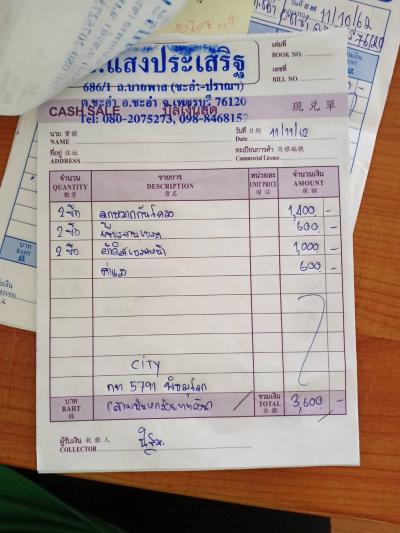 11/10/62
.แสงประเสริฐ
686/1 ถ.บายพาส (ชะอำ-ปราณฯ)
ต.ชะอำ อ.ชะอำ จ.เพชรบุรี 76120
Tel: 080-2075273, 098-8468152
เล่มที่
BOOK NO.
เลขที่
BILL NO.
CASH SALE บิลเงินสด 現兑單
นาม 寶號
NAME
วันที่ 日期 11/11/62
Date
ที่อยู่ 住址
ADDRESS
ทะเบียนการค้า 商標編號
Commercial License
จำนวน QUANTITY 數量
รายการ DESCRIPTION 貨名
หน่วยละ UNIT PRICE 備註
จำนวนเงิน AMOUNT 銀額
2 ตัว ลูกหมากกันโคลง 1,400 -
2 ตัว 600 -
2 ตัว 1,000 -
ค่าแรง 600 -
CITY
กท 5791 พิษณุโลก
บาท BAHT 銖
(สามพันหกร้อยบาทถ้วน)
รวมเงิน TOTAL 共銀 3,600 -
ผู้รับเงิน 收銀人
COLLECTOR